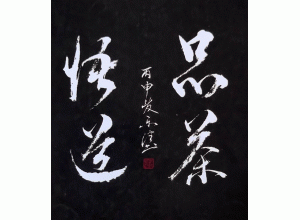 品茶
悟道
丙申岁